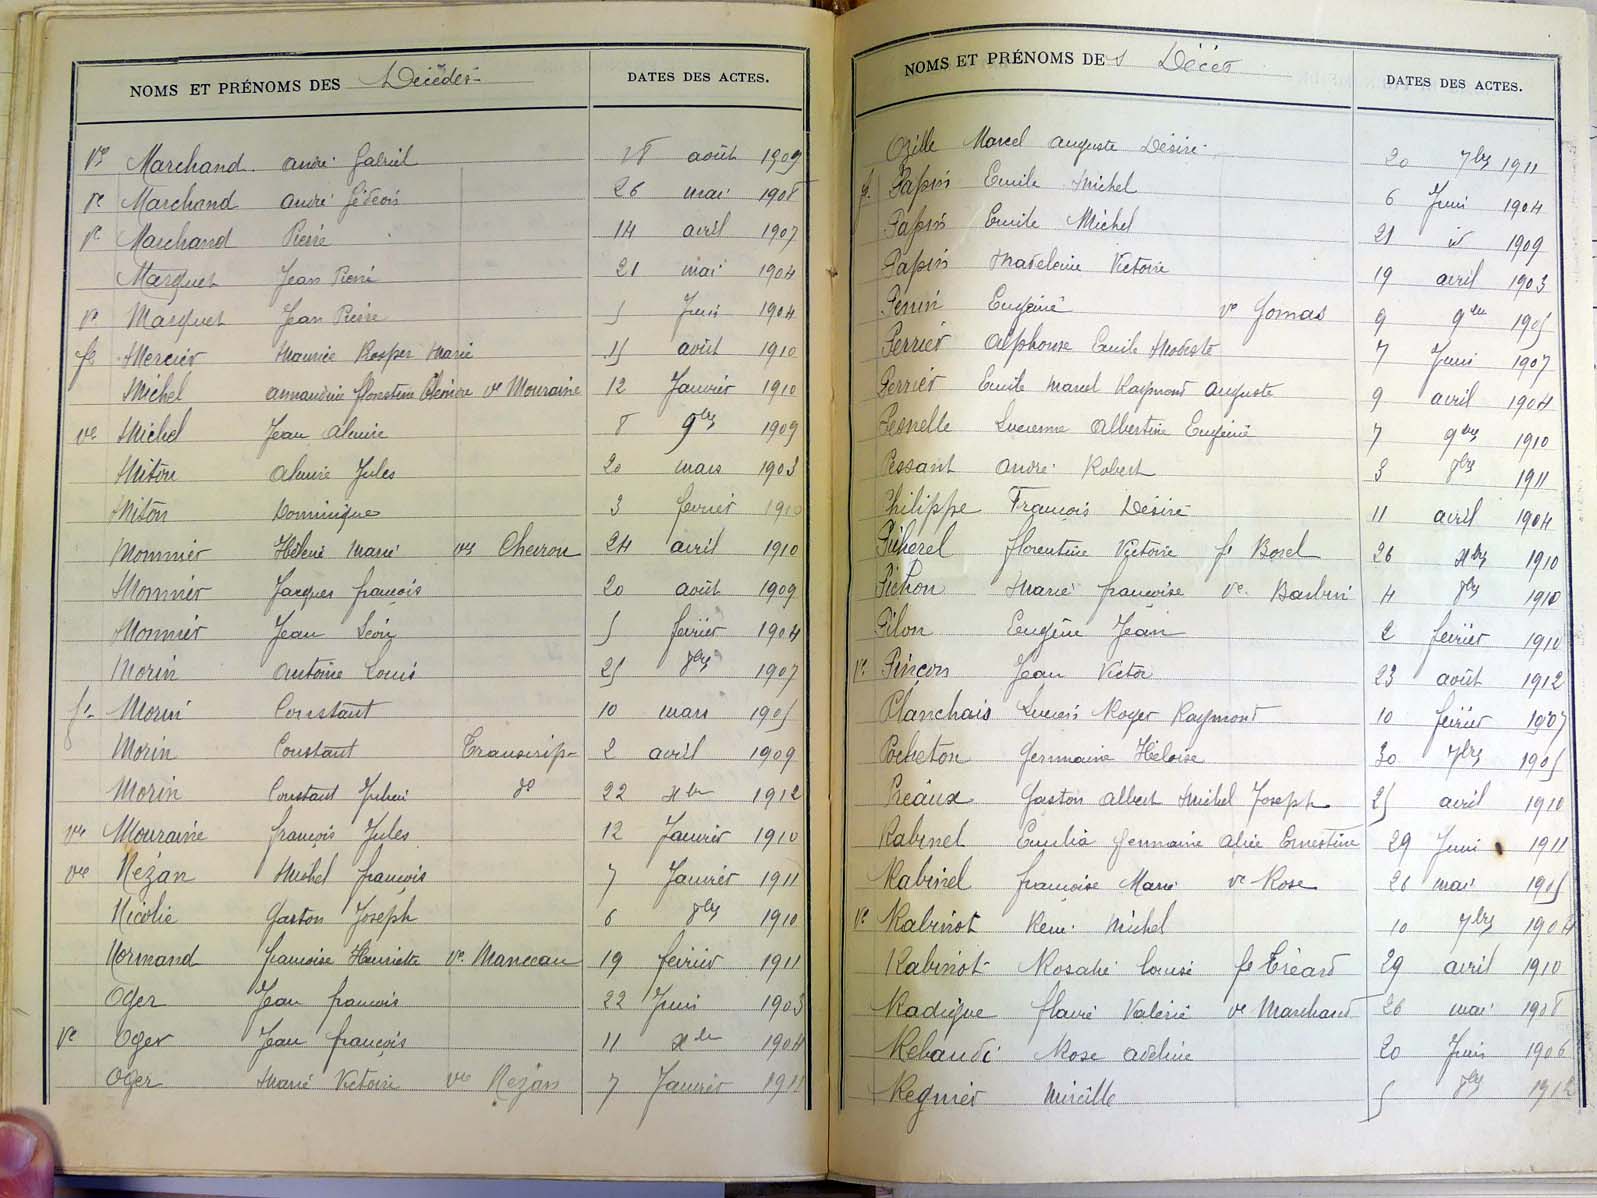 NOMS ET PRÉNOMS DES Décédés DATES DES ACTES.
Ve Marchand André Gabriel août 1909
Ve Marchand André Gédéon 26 mai 1908
Ve Marchand Pierre 14 avril 1907
Marquet Jean Pierre 21 mai 1904
Ve Marquet Jean Pierre 5 Juin 1904
fe Mercier Maurice Prosper Marie 15 août 1910
Michel Amandine florestine ve Mouraine 12 Janvier 1910
ve Michel Jean Alexis 8 9bre 1909
Miton Jules 20 mars 1903
Miton Dominique 3 fevrier 1910
Monnier Hélène Marie ve Cheiron 24 avril 1910
Monnier Jacques françois 20 août 1909
Monnier Jean Léon 5 février 1904
Morin Antoine Louis 25 1907
fe Morin Constant 10 mars 1905
Morin Constant Transcrip- 2 avril 1909
Morin Constant Julien do 22 xbre 1912
ve Mouraine françois Jules 12 Janvier 1910
ve Nezan Michel françois 7 Janvier 1911
Nicolie Gaston Joseph 6 1910
Normand françoise Henriette ve Manceau 19 février 1911
Oger Jean françois 22 Juin 1903
Ve Oger Jean françois 11 xbre 1904
Oger Marie Victoire ve Nezan 7 Janvier 1911
NOMS ET PRÉNOMS DES Décés DATES DES ACTES.
Ozille Marcel Auguste Désiré 20 7bre 1911
fe Papin Emile Michel 6 Juin 1904
Papin Emile Michel 21 id 1909
Papin Madeleine Victoire 19 avril 1903
Perrin Eugénie ve Gomas 9 9bre 1905
Perrier Alphonse Emile Modeste 7 Juin 1907
Perrier Emile Marcel Raymond Auguste 9 avril 1904
Pesnelle Lucienne Albertine Eugénie 7 9bre 1910
Pessant André Robert 3 1911
Philippe François Désiré 11 avril 1904
Picherel florentine Victoire fe Borel 26 xbre 1910
Pichon Marie françoise ve Barbin 4 1910
Pilon Eugène Jean 2 février 1910
Ve Pinçon Jean Victor 23 août 1912
Planchais Lucien Roger Raymond 10 février 1907
Pocheton Germaine Héloïse 30 7bre 1905
Préaux Gaston Albert Michel Joseph 25 avril 1910
Rabinel Emilia Germaine Alice Ernestine 29 Juin 1911
Rabinel françoise Marie ve Rose 26 mai 1905
Ve Rabinot René Michel 10 7bre 1904
Rabinot Rosalie Louise fe Tréard 29 avril 1910
Radigue Valérie ve Marchand 26 mai 1908
Rebaudi Rose Adeline 20 Juin 1906
Regnier Mireille 5 1912